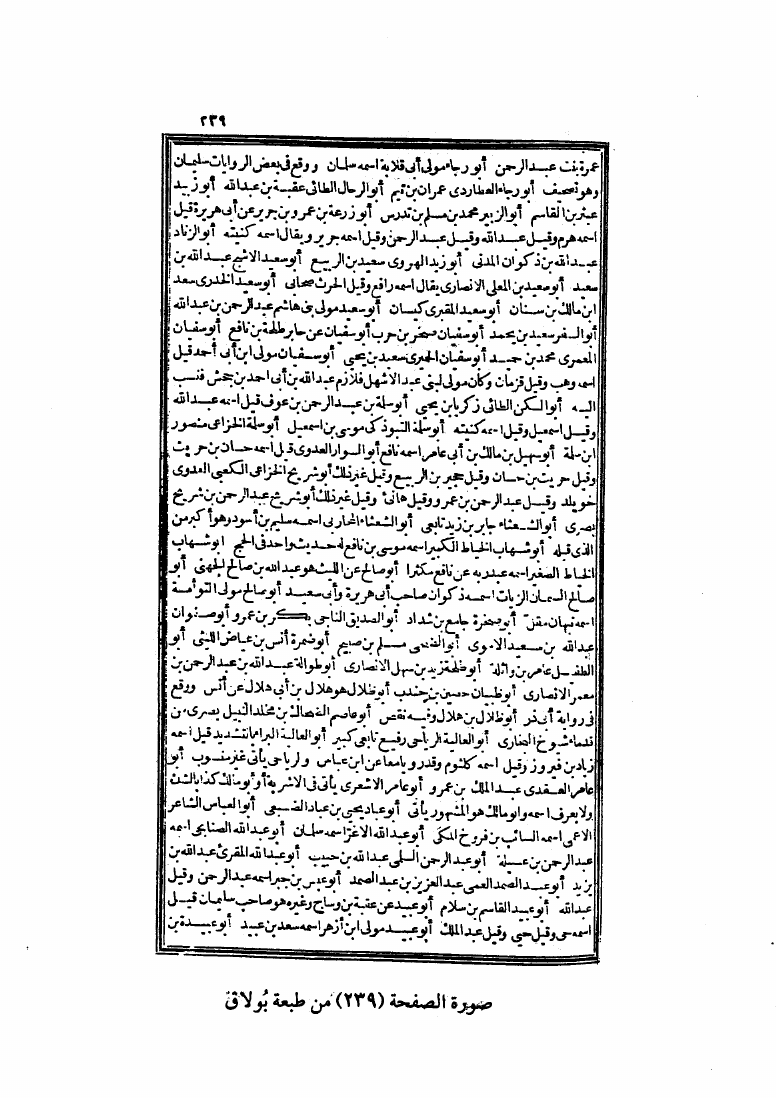 ٢٣٩
عمرة بنت عبد الرحمن أبو رجاء مولى أبى قلابة اسمه سلمان ووقع فى بعض الروايات سليمان
وهو تصحيف أبو رجاء العطاردى عمران بن تيم أبو الرحال الطائى عقبة بن عبد الله أبو زبيد
عبثر بن القاسم أبو الزبير محمد بن مسلم بن تدرس أبو زرعة بن عمرو بن جرير عن أبى هريرة قيل
اسمه هرم وقيل عبد الله وقيل عبد الرحمن وقيل اسمه جرير ويقال اسمه كنيته أبو الزناد
عبد الله بن ذكوان المدنى أبو زيد الهروى سعيد بن الربيع أبو سعيد الاشج عبد الله بن
سعيد أبو سعيد بن المعلى الانصارى يقال اسمه رافع وقيل الحرث صحابى أبو سعيد الخدرى سعد
ابن مالك بن سنان أبو سعيد المقبرى كيسان أبو سعيد مولى بنى هاشم عبد الرحمن بن عبد الله
أبو السفر سعيد بن يحمد أبو سفيان صخر بن حرب أبو سفيان عن جابر طلحة بن نافع أبو سفيان
المعمرى محمد بن حميد أبو سفيان الحميرى سعيد بن يحيى أبو سفيان مولى ابن أبى أحمد قيل
اسمه وهب وقيل قزمان وكان مولى لبنى عبد الاشهل فلازم عبد الله بن أبى احمد بن جحش فنسب
اليه أبو السكن الطائى زكريا بن يحيى أبو سلمة بن عبد الرحمن بن عوف قيل اسمه عبد الله
وقيل اسمعيل وقيل اسمه كنيته أبو سلمة التبوذكى موسى بن اسمعيل أبو سلمة الخزاعى منصور
ابن سلمة أبو سهيل بن مالك بن أبى عامر اسمه نافع أبو السوار العدوى قيل اسمه حسان بن حريث
وقيل حريث بن حسان وقيل حجير بن الربيع وقيل غير ذلك أبو شريح الخزاعى الكعبى العدوى
خويلد وقيل عبد الرحمن بن عمرو وقيل هانئ وقيل غير ذلك أبو شريح عبد الرحمن بن شريح
بصرى أبو الشعثاء جابر بن زيد تابعى أبو الشعثاء المحاربى اسمه سليم بن أسود وهو أكبر من
الذى قبله أبو شهاب الخياط الكبير اسمه موسى بن نافع له حديث واحد فى الحج ابو شهاب
الخياط الصغير اسمه عبد ربه عن نافع مكثرا أبو صالح عن الليث هو عبد الله بن صالح الجهنى أبو
صالح السمان الزيات اسمه ذكوان صاحب أبى هريرة وأبى سعيد أبو صالح مولى التوأمة
اسمه نبهان مقل أبو صخرة جامع بن شداد أبو الصديق الناجى بكر بن عمرو أبو صفوان
عبد الله بن سعيد الاموى أبو الضحى مسلم بن صبيح أبو ضمرة أنس بن عياض الليثى أبو
الطفيل عامر بن واثلة أبو طلحة زيد بن سهل الانصارى أبو طوالة عبد الله بن عبد الرحمن بن
معمر الانصارى أبو ظبيان حصين بن جندب أبو ظلال هو هلال بن أبى هلال عن أنس ووقع
فى رواية أبى ذر أبو ظلال بن هلال وفيه نقص أبو عاصم الضحاك بن مخلد النبيل بصرى من
قدماء شيوخ البخارى أبو العالية الرياحى رفيع تابعى كبير أبو العالية البراء بالتشديد قيل اسمه
زياد بن فيروز وقيل اسمه كلثوم وقد رويا معا عن ابن عباس والرياحى يأتى غير منسوب أبو
عامر العقدى عبد الملك بن عمرو أبو عامر الاشعرى يأتى فى الاشربة أو أبو مالك كذا بالشك
ولا يعرف اسمه وابو مالك هو المشهور يأتى أبو عباد يحيى بن عباد الضبعى أبو العباس الشاعر
الاعمى اسمه السائب بن فروخ المكى أبو عبد الله الاغر اسمه سلمان أبو عبد الله الصنابحى اسمه
عبد الرحمن بن عسيلة أبو عبد الرحمن السلمى عبد الله بن حبيب أبو عبد الله المقرئ عبد الله بن
يزيد أبو عبد الصمد العمى عبد العزيز بن عبد الصمد أبو عبس بن جبر اسمه عبد الرحمن وقيل
عبد الله أبو عبيد القاسم بن سلام أبو عبيد عن عقبة بن وساج وغيره هو صاحب سليمان قيل
اسمه حى وقيل حيى وقيل عبد الملك أبو عبيد مولى ابن أزهر اسمه سعد بن عبيد أبو عبيدة بن
صورة الصفحة (٢٣٩) من طبعة بُولاق